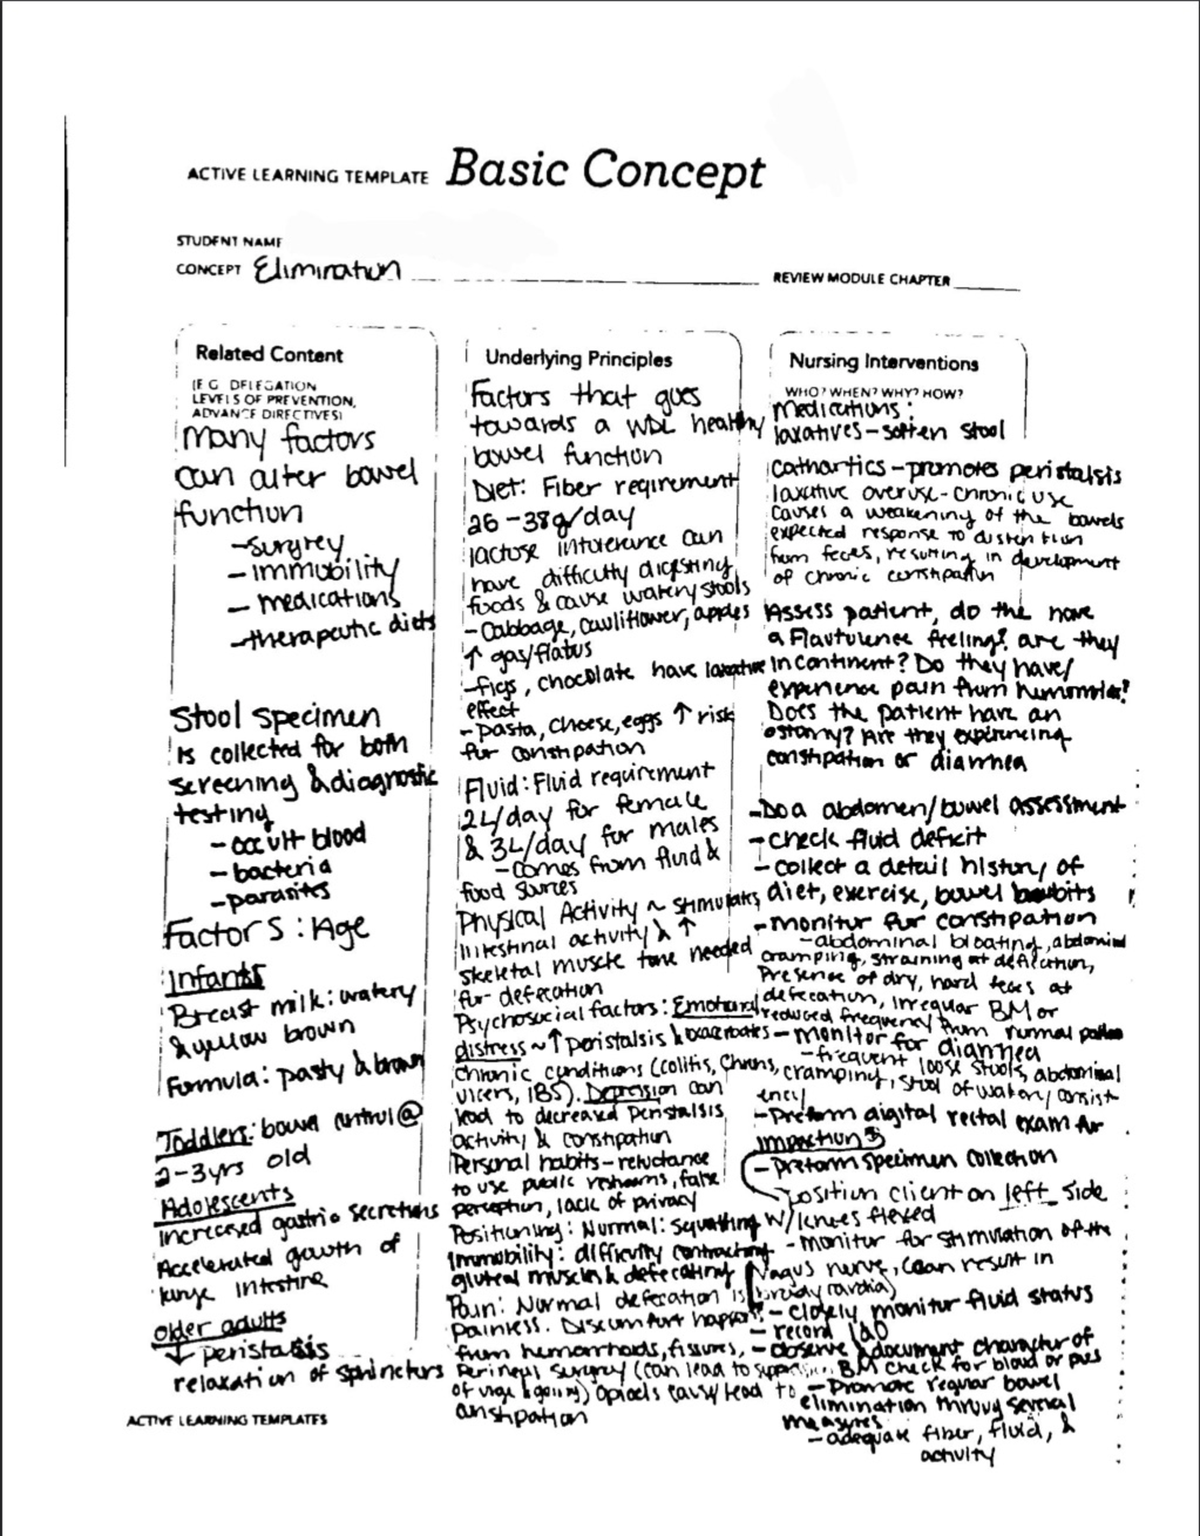 ACTIVE LEARNING TEMPLATE Basic Concept
STUDENT NAME
CONCEPT Elimination
REVIEW MODULE CHAPTER
Related Content
(E G DELEGATION
LEVELS OF PREVENTION,
ADVANCE DIRECTIVES)
Many factors
can alter bowel
function
-surgrey
- immobility
- medications
-therapeutic diets
Stool specimen
is collected for both
screening & diagnostic
testing
- occult blood
- bacteria
-parasites
Factors: Age
Infants
Breast milk: watery
& yellow brown
Formula: pasty & brown
Toddlers: bowel control @
2-3yrs old
Adolescents
Increased gastric secretions
Accelerated growth of
large intestine
older adults
↓ peristalsis
relaxation of sphincters
Underlying Principles
Factors that goes
towards a WDL healthy
bowel function
Diet: Fiber reqirement
26-38g/day
lactose intolerance can
have difficulty digesting
foods & cause watery stools
- Cabbage, cauliflower, apples
↑ gas/flatus
-figs, chocolate have laxative
effect
- pasta, cheese, eggs ↑ risk
for constipation
Fluid: Fluid requirement
2L/day for female
& 3L/day for males
-comes from fluid &
food sources
Physical Activity ~ stimulates
intestinal activity & ↑
skeletal muscle tone needed
for defecation
Psychosocial factors: Emotional
distress ~ ↑ peristalsis & exacerbates
chronic conditions (colitis, Chrons,
ulcers, IBS). Depression can
lead to decreased peristalsis
activity & constipation
Personal habits - reluctance
to use public restrooms, false
perception, lack of privacy
Positioning: Normal: squatting w/ knees flexed
Immobility: difficulty contracting
gluteal muscles & defecating
Pain: Normal defecation is
painless. Discomfort happens
from hemorrhoids, fissures,
Perineal surgery (can lead to
of urge & going) Opioids cause/lead to
constipation
Nursing Interventions
WHO? WHEN? WHY? HOW?
Medications:
laxatives-soften stool
Cathartics - promotes peristalsis
laxative overuse-chronic use
causes a weakening of the bowels
expected response to distention
from feces, resulting in development
of chronic constipation
Assess patient, do the have
a Flautulence feeling? are they
incontinent? Do they have/
experience pain from
Does the patient have an
ostomy? Are they experincing
constipation or diarrhea
-Do a abdomen/bowel assessment
-check fluid deficit
-collect a detail history of
diet, exercise, bowel
-monitor for constipation
-abdominal bloating, abdominal
cramping, straining at defecation,
Presence of dry, hard feces at
defecation, irregular BM or
reduced frequency from normal
- monitor for diarrhea
-frequent loose stools, abdominal
cramping, stool of watery consist
ency
-Preform digital rectal exam for
impactions
-Preform specimen collection
position client on left side
-monitor for stimulation of the
Vagus nerve, (can result in
bradycardia)
- closely monitor fluid status
- record I&O
-observe & document character of
BM check for blood or pus
-Promote regular bowel
elimination throug several
measures
-adequate fiber, fluid, &
activity
ACTIVE LEARNING TEMPLATES